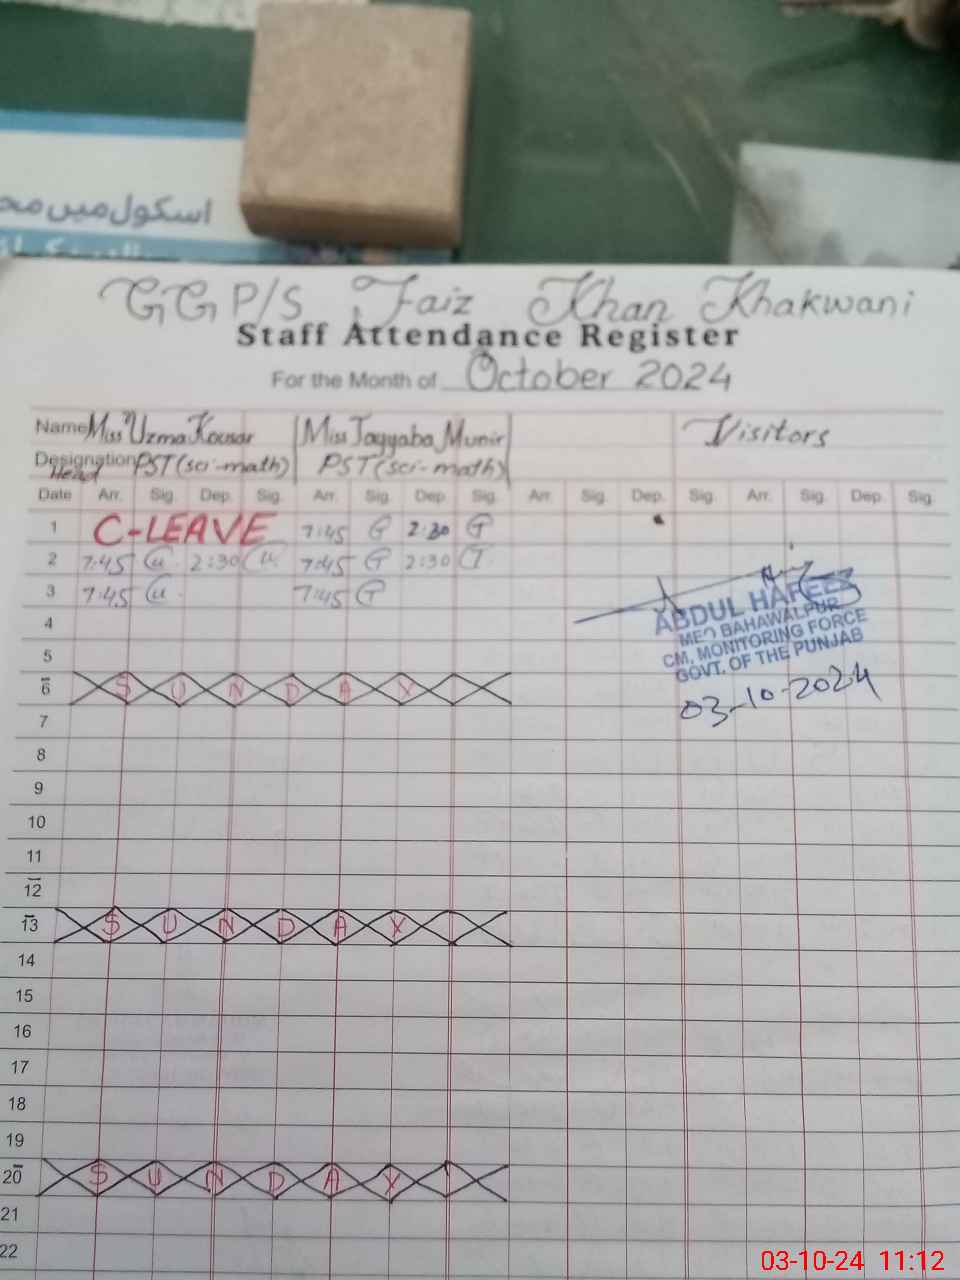 اسکول میں
GGP/S Faiz Khan Khakwani
Staff Attendance Register
For the Month of October 2024
Name Miss Uzma Kousar Miss Tayyaba Munir Visitors
Designation Head PST (sci-math) PST (sci-math)
Date Arr. Sig. Dep. Sig. Arr. Sig. Dep. Sig. Arr. Sig. Dep. Sig. Arr. Sig. Dep. Sig.
1 C-LEAVE 7:45 G 2:30 G
2 7:45 2:30 7:45 G 2:30 G
3 7:45 7:45 G
4
5
6 SUNDAY
7
8
9
10
11
12
13 SUNDAY
14
15
16
17
18
19
20 SUNDAY
21
22
ABDUL HAFEEZ
MEO BAHAWALPUR
CM, MONITORING FORCE
GOVT. OF THE PUNJAB
03-10-2024
03-10-24 11:12